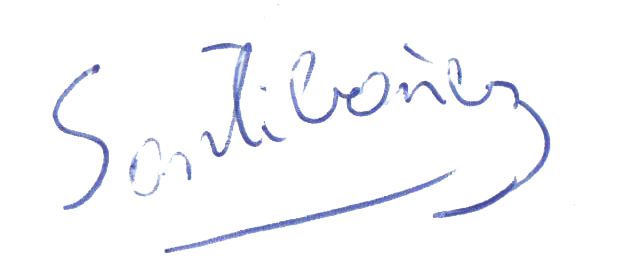 Santibáñez